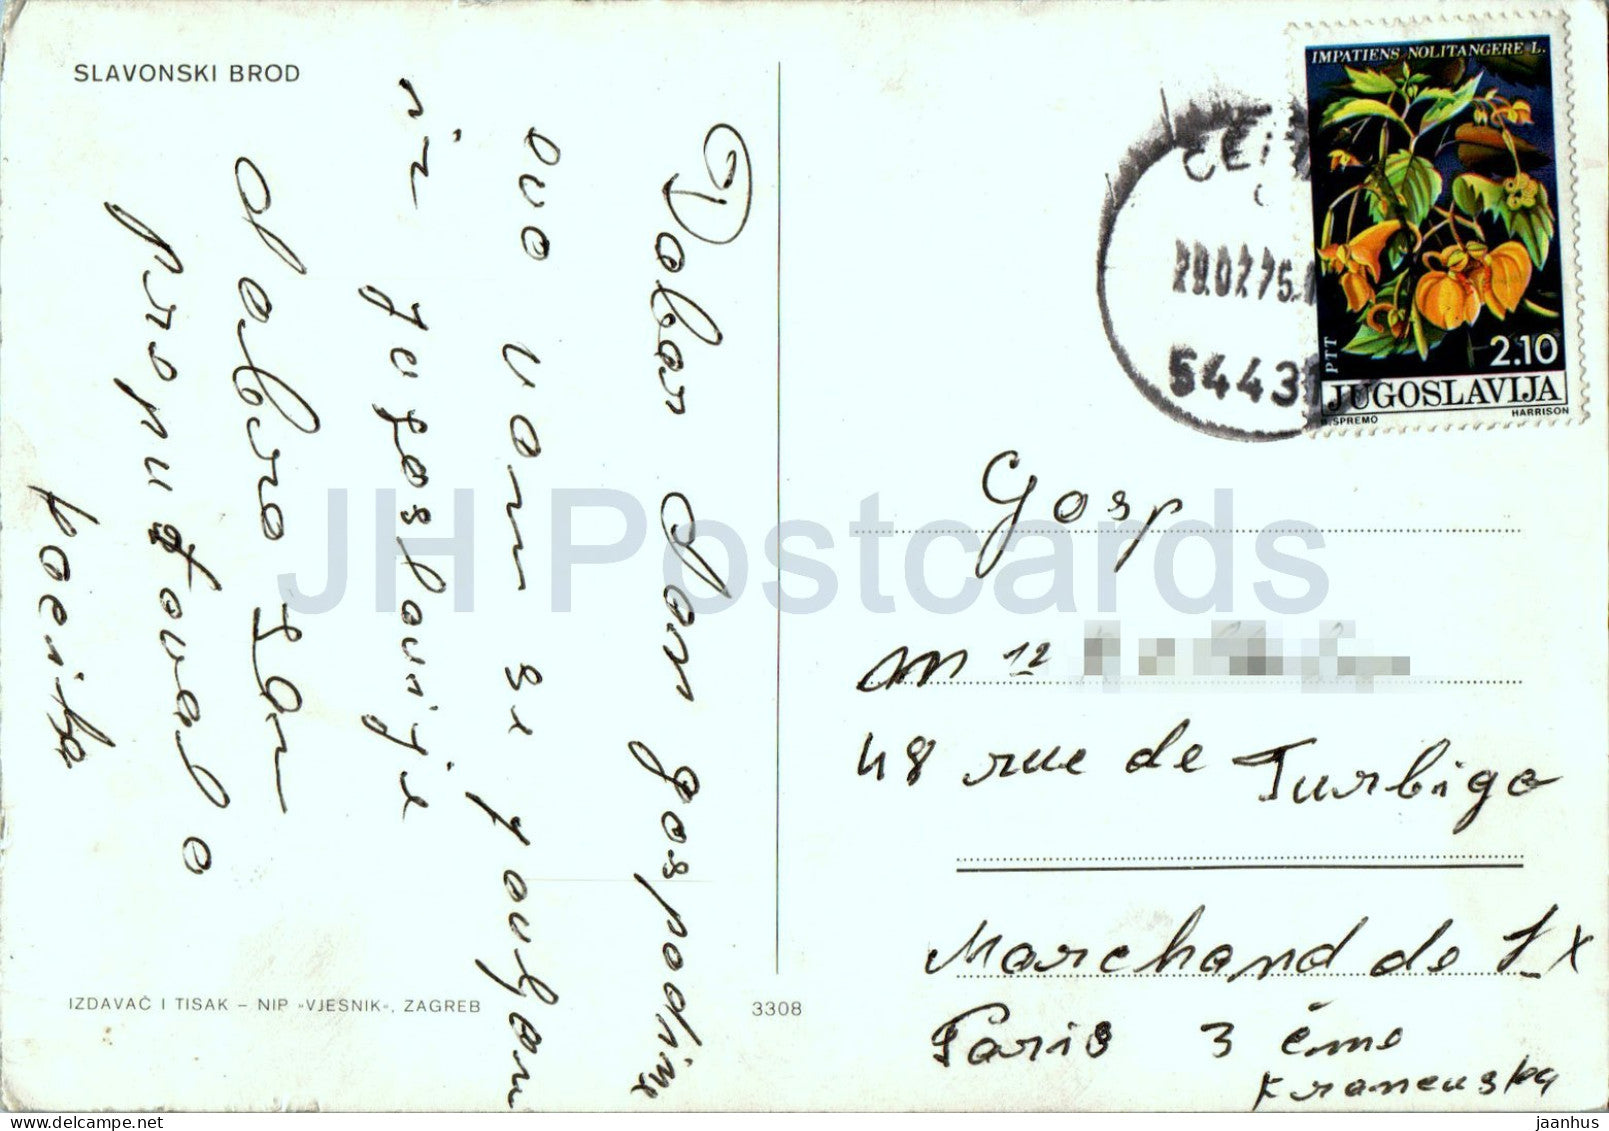 SLAVONSKI BROD
Dobar dan gospodine
ovo vam se javljam
iz jugoslavije
dobro sam
proputovalo
IZDAVAČ I TISAK – NIP »VJESNIK«, ZAGREB
3308
IMPATIENS NOLITANGERE L.
PTT
2.10
JUGOSLAVIJA
B. SPREMO
HARRISON
29.07.75
54431
Gosp
m 12
48 rue de Turbigo
Marchand de
Paris 3 éme
Francuska
JH Postcards
jaanhus